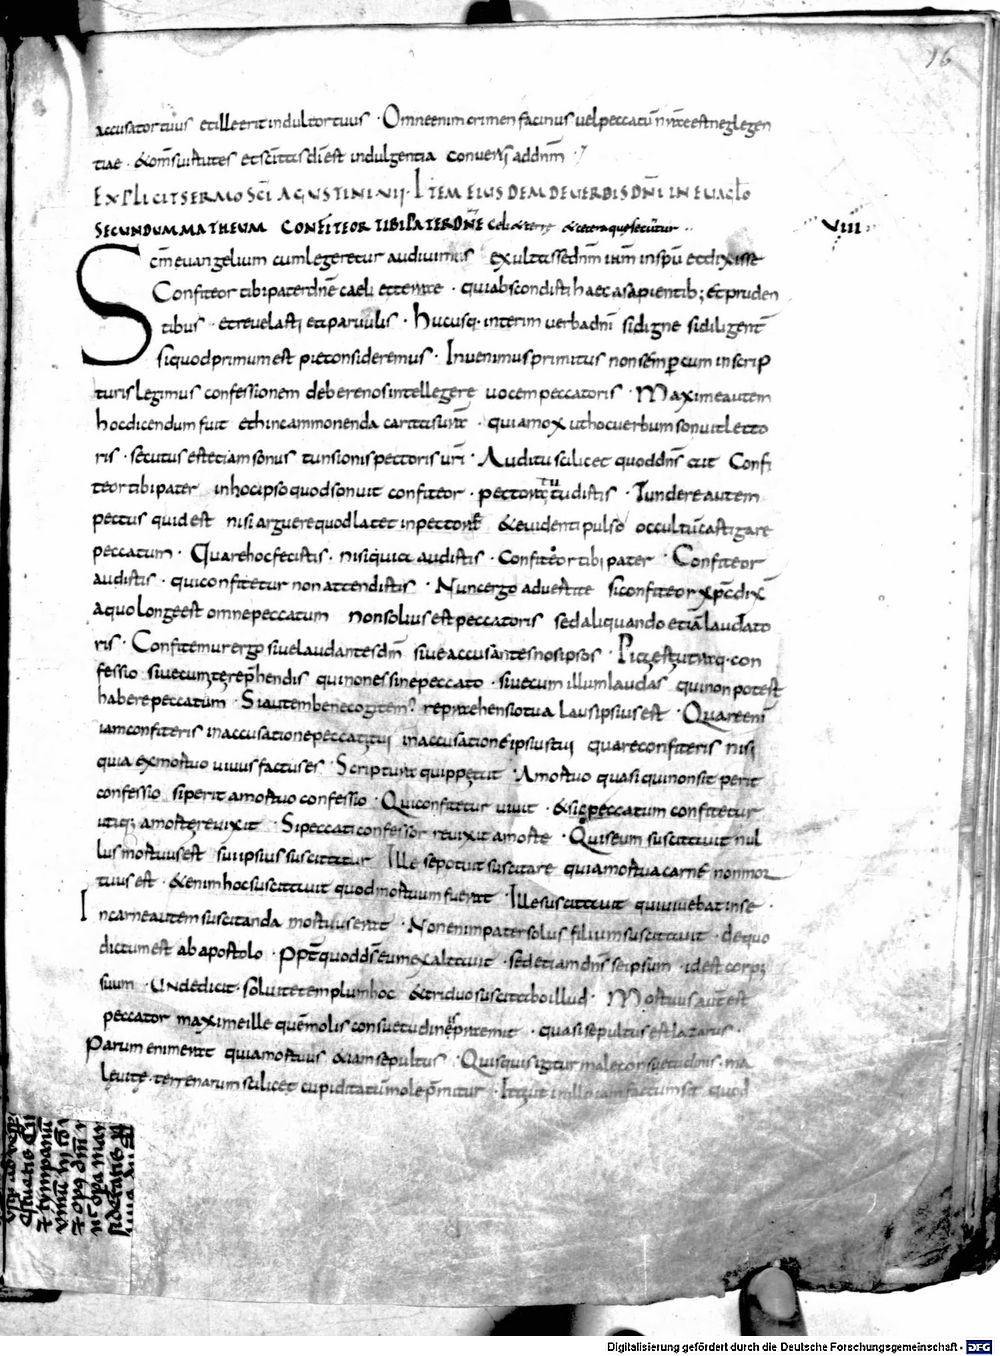 16
accusator tuus et ille erit indultor tuus · Omne enim crimen facinus uel peccatū nr̄ae est neglegen
tiae · & om̄s uirtutes et sc̄itas dī est indulgentia conuersi ad dn̄m
EXPLICIT SERMO SCĪ AGUSTINI VII · ITEM EIUSDEM DE UERBIS DN̄I IN EUAGLO
SECUNDUM MATHEUM CONFITEOR TIBI PATER DN̄E celi & terre & cetera que secuntur
VIII
Scm̄ euangelium cum legeretur audiuimus exultasse dn̄m ih̄m in sp̄u et dixisse
Confiteor tibi pater dn̄e caeli et terrae · qui abscondisti haec a sapientib; et pruden
tibus · et reuelasti ea paruulis · Hucusq· interim uerba dn̄i si digne si diligent̄
si quod primum est pie consideremus · Inuenimus primitus non semp cum in scrip
turis legimus confessionem debere nos intellegere uocem peccatoris · Maxime autem
hoc dicendum fuit et hinc ammonenda caritas · quia mox ut hoc uerbum sonuit lecto
ris · secutus est etiam sonus tunsionis pectoris ur̄i · Auditu scilicet quod dn̄s ait Confi
teor tibi pater in hoc ipso quod sonuit confiteor · pectora tudistis · Tundere autem
pectus quid est nisi arguere quod latet in pectore & euidenti pulso occultū castigare
peccatum · Quare hoc fecistis · nisi quia audistis · Confiteor tibi pater · Confiteor
audistis · qui confitetur non attendistis · Nunc ergo aduertite si confiteor xp̄c dix̄
a quo longe est omne peccatum non solius est peccatoris sed aliquando etiā laudato
ris · Confitemur ergo siue laudantes dm̄ siue accusantes nos ipsos · Pia est utraq· con
fessio siue cum te rep̄hendis qui non es sine peccato · siue cum illum laudas qui non potest
habere peccatum · Si autem bene cogitem? reprehensio tua laus ipsius est · Quare eni
iam confiteris in accusatione peccati tui in accusatione ipsius tui quare confiteris nisi
quia ex mortuo uiuus factus es · Scriptura quippe ait · A mortuo quasi qui non sit perit
confessio si perit a mortuo confessio · Qui confitetur uiuit · & si peccatum confitetur
utiq; a morte reuixit · Si peccati confessor reuixit a morte · Quis eum suscitauit nul
lus mortuus est sui ipsius suscitatur Ille se potuit suscitare quia mortua carne non mor
tuus est · & enim hoc suscitauit quod mortuum fuerat · Ille suscitauit qui uiuebat in se ·
In carne autem suscitanda mortuus erat · Non enim pater solus filium suscitauit · de quo
dictum est ab apostolo · Ppt̄ quod ds̄ eum exaltauit · sed etiam dn̄s se ipsum · id est corpus
suum · Unde dicit · soluite templum hoc & triduo suscitabo illud · Mortuus aut̄ est
peccator maxime ille quē molis consuetudinis p̄mit · quasi sepultus est lazarus ·
Parum enim erat quia mortuus & iam sepultus · Quisquis igitur male consuetudinis · ma
le uitę · terrenarum scilicet cupiditatū mole p̄mitur · Ita ut in illo iam factum sit quod
Digitalisierung gefördert durch die Deutsche Forschungsgemeinschaft - DFG